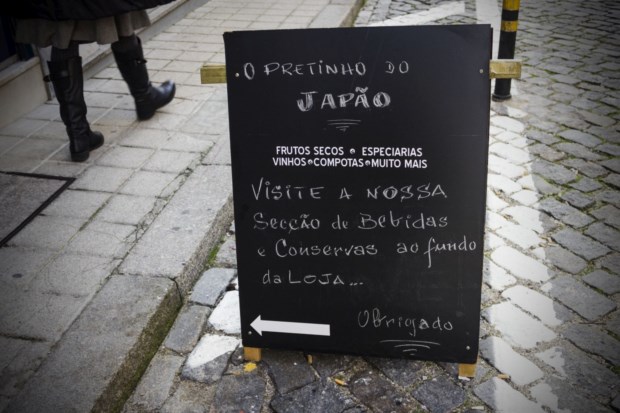 O PRETINHO DO
JAPÃO
FRUTOS SECOS • ESPECIARIAS
VINHOS • COMPOTAS • MUITO MAIS
VISITE A NOSSA
Secção de Bebidas
e Conservas ao fundo
da LOJA...
Obrigado